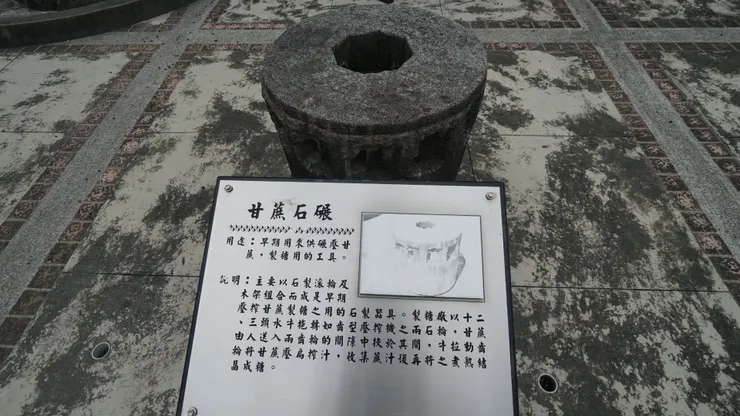 甘蔗石碾
用途：早期用來供碾壓甘
蔗，製糖用的工具。
說明：主要以石製滾輪及
木架組合而成是早期
壓榨甘蔗製糖之用的石製器具。製糖廠以十二
、三頭水牛拖轉如齒型壓榨機之兩石輪，甘蔗
由人送入兩齒輪的間隙中扶於其間，牛拉動齒
輪將甘蔗壓扁榨汁，收集蔗汁後再將之煮熟結
晶成糖。